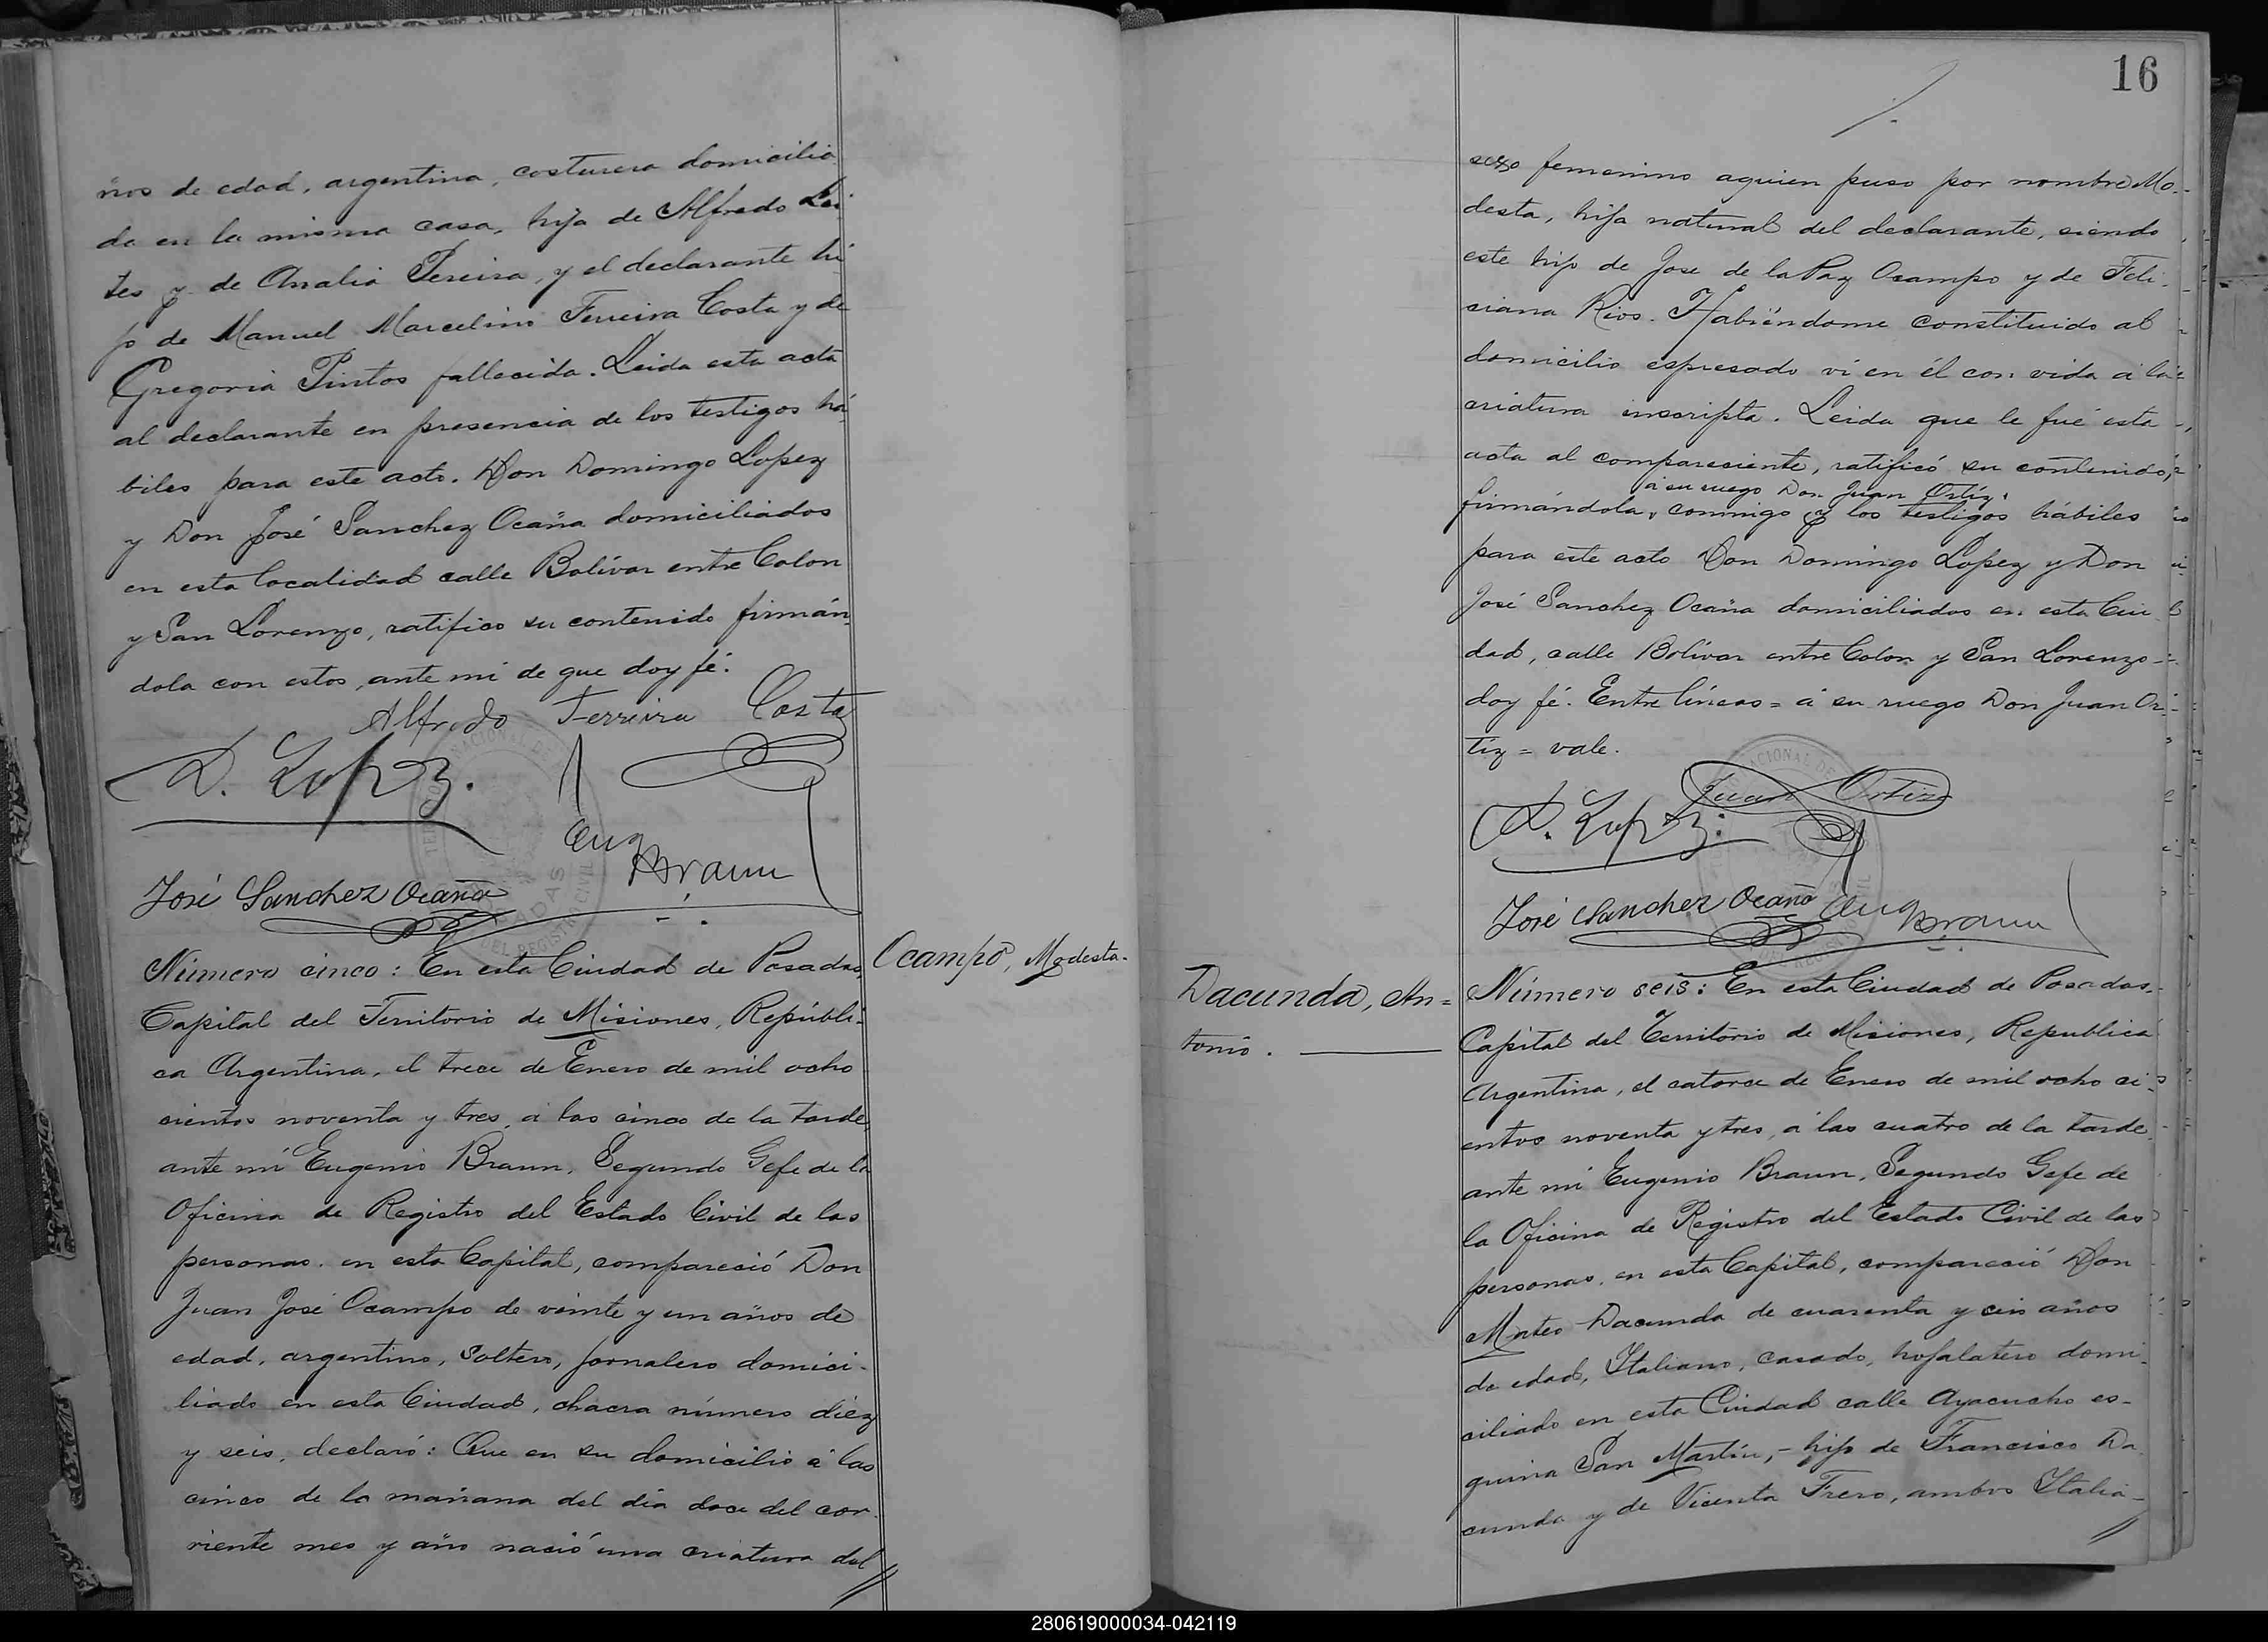 ños de edad, argentina, costurera domicilia
da en la misma casa, hija de Alfredo Lei
tes y de Analia Pereira, y el declarante hi
jo de Manuel Marcelino Ferreira Costa y de
Gregoria Pintos fallecida. Leida esta acta
al declarante en presencia de los testigos há
biles para este acto. Don Domingo Lopez
y Don José Sanchez Ocaña domiciliados
en esta localidad calle Bolívar entre Colon
y San Lorenzo, ratifico su contenido firmán
dola con estos, ante mi de que doy fé.
Alfredo Ferreira Costa
D. Lopez.
Eug Braun
José Sanchez Ocaña
Ocampo, Modesta.
Número cinco: En esta Ciudad de Posadas,
Capital del Territorio de Misiones, Repúbli-
ca Argentina, el trece de Enero de mil ocho
cientos noventa y tres, á las cinco de la tarde,
ante mi Eugenio Braun, Segundo Gefe de la
Oficina de Registro del Estado Civil de las
personas. en esta Capital, compareció Don
Juan José Ocampo de veinte y un años de
edad, argentino, soltero, jornalero domici-
liado en esta Ciudad, chacra número diez
y seis, declaró: Que en su domicilio á las
cinco de la mañana del dia doce del cor-
riente mes y año nació una criatura del
16
sexo femenino aquien puso por nombre Mo-
desta, hija natural del declarante, siendo
este hijo de Jose de la Paz Ocampo y de Feli-
ciana Rios. Habiéndome constituido al
domicilio espresado vi en él con vida á la
criatura inscripta. Leida que le fué esta
acta al compareciente, ratificó su contenido,
á su ruego Don Juan Ortíz,
firmándola, conmigo y los testigos hábiles
para este acto Don Domingo Lopez y Don
José Sanchez Ocaña domiciliados en esta Ciu
dad, calle Bolívar entre Colon y San Lorenzo-
doy fé. Entre líneas = á su ruego Don Juan Or-
tíz = vale.
Juan Ortiz
D. Lopez.
José Sanchez Ocaña
Eug Braun
Dacunda, An=
tonio.
Número seis: En esta Ciudad de Posadas,
Capital del Territorio de Misiones, Republica
Argentina, el catorce de Enero de mil ocho ci-
entos noventa y tres, á las cuatro de la tarde,
ante mi Eugenio Braun, Segundo Gefe de
la Oficina de Registro del Estado Civil de las
personas. en esta Capital, compareció Don
Mateo Dacunda de cuarenta y seis años
de edad, Italiano, casado, hojalatero domi-
ciliado en esta Ciudad calle Ayacucho es-
quina San Martin, - hijo de Francisco Da
cunda y de Vicenta Frero, ambos Italia-
280619000034-042119